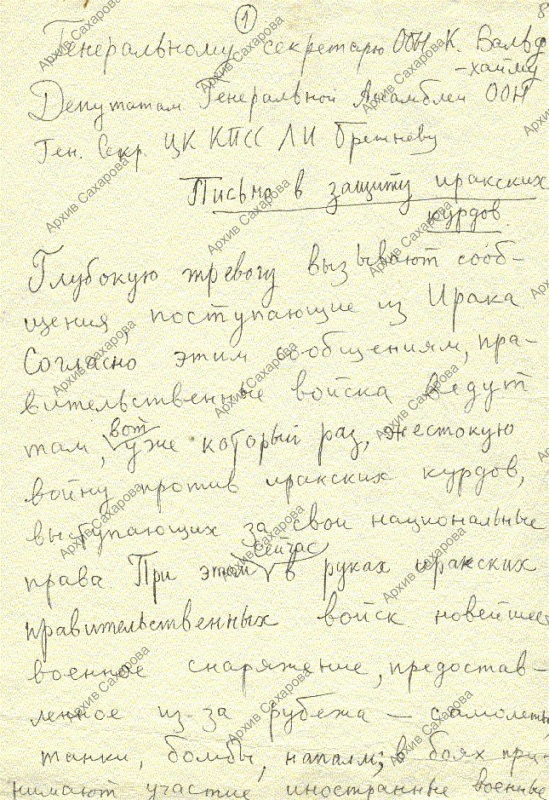 1
8
Генеральному секретарю ООН К. Вальд-
-хайму
Депутатам Генеральной Ассамблеи ООН
Ген. Секр. ЦК КПСС Л И Брежневу
Письмо в защиту иракских
курдов.
Глубокую тревогу вызывают сооб-
щения, поступающие из Ирака
Согласно этим сообщениям, пра-
вительственные войска ведут
вот
там, уже который раз, жестокую
войну против иракских курдов,
выступающих за свои национальные
сейчас
права При этом в руках иракских
правительственных войск новейшее
военное снаряжение, предостав-
ленное из-за рубежа — самолеты,
танки, бомбы, напалм; в боях при-
нимают участие иностранные военные
Архив Сахарова